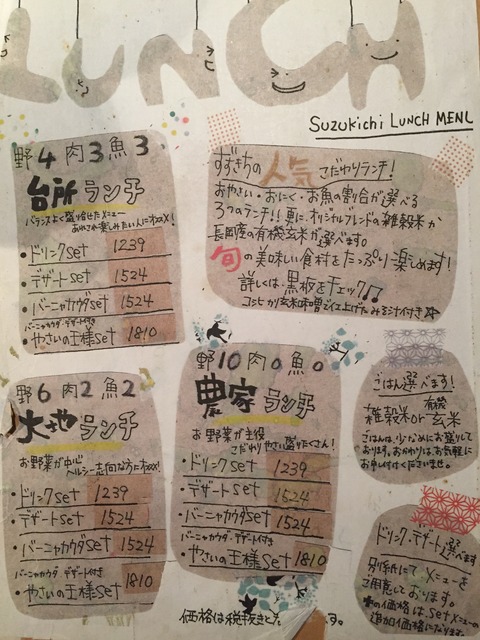 LUNCH
SUZUKICHI LUNCH MENU
野4 肉3 魚3
台所ランチ
バランスよく盛り合せたメニュー
あれこれ楽しみたい人にオススメ!
・ドリンクset 1239
・デザートset 1524
・バーニャカウダset 1524
バーニャカウダ・デザート付き
・やさいの王様set 1810
すずきちの人気こだわりランチ!
おやさい・おにく・お魚の割合が選べる
3つのランチ!!更に、オリジナルブレンドの雑穀米か
長岡産の有機玄米が選べます。
旬の美味しい食材をたっぷり楽しめます!
詳しくは黒板をチェック♫
コシヒカリ玄米味噌で仕上げたみそ汁付き☆
野6 肉2 魚2
大地ランチ
お野菜が中心
ヘルシー志向な方にオススメ!
・ドリンクset 1239
・デザートset 1524
・バーニャカウダset 1524
バーニャカウダ・デザート付き
・やさいの王様set 1810
野10 肉0 魚0
農家ランチ
お野菜が主役
こだわりやさい盛りだくさん!
・ドリンクset 1239
・デザートset 1524
・バーニャカウダset 1524
バーニャカウダ・デザート付き
・やさいの王様set 1810
ごはん選べます!
雑穀米or有機玄米
ごはんは少なめにお盛りして
おります。おかわりはお気軽に
お申し付けくださいませ。
ドリンク・デザート選べます
別紙にてメニューを
ご用意しております。
の価格はsetメニューの
追加価格になります。
価格は税抜きと す。